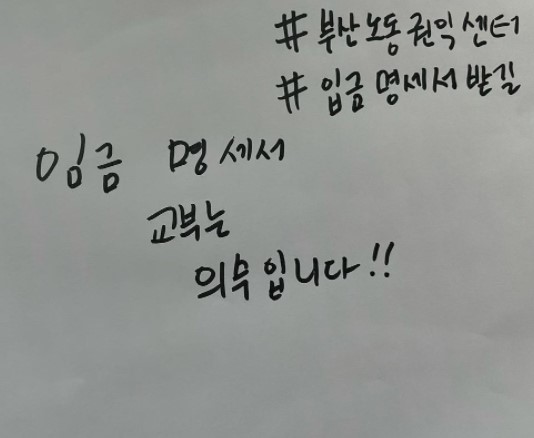 # 부산노동권익센터
# 입금명세서받길
임금 명세서
교부는
의무입니다!!